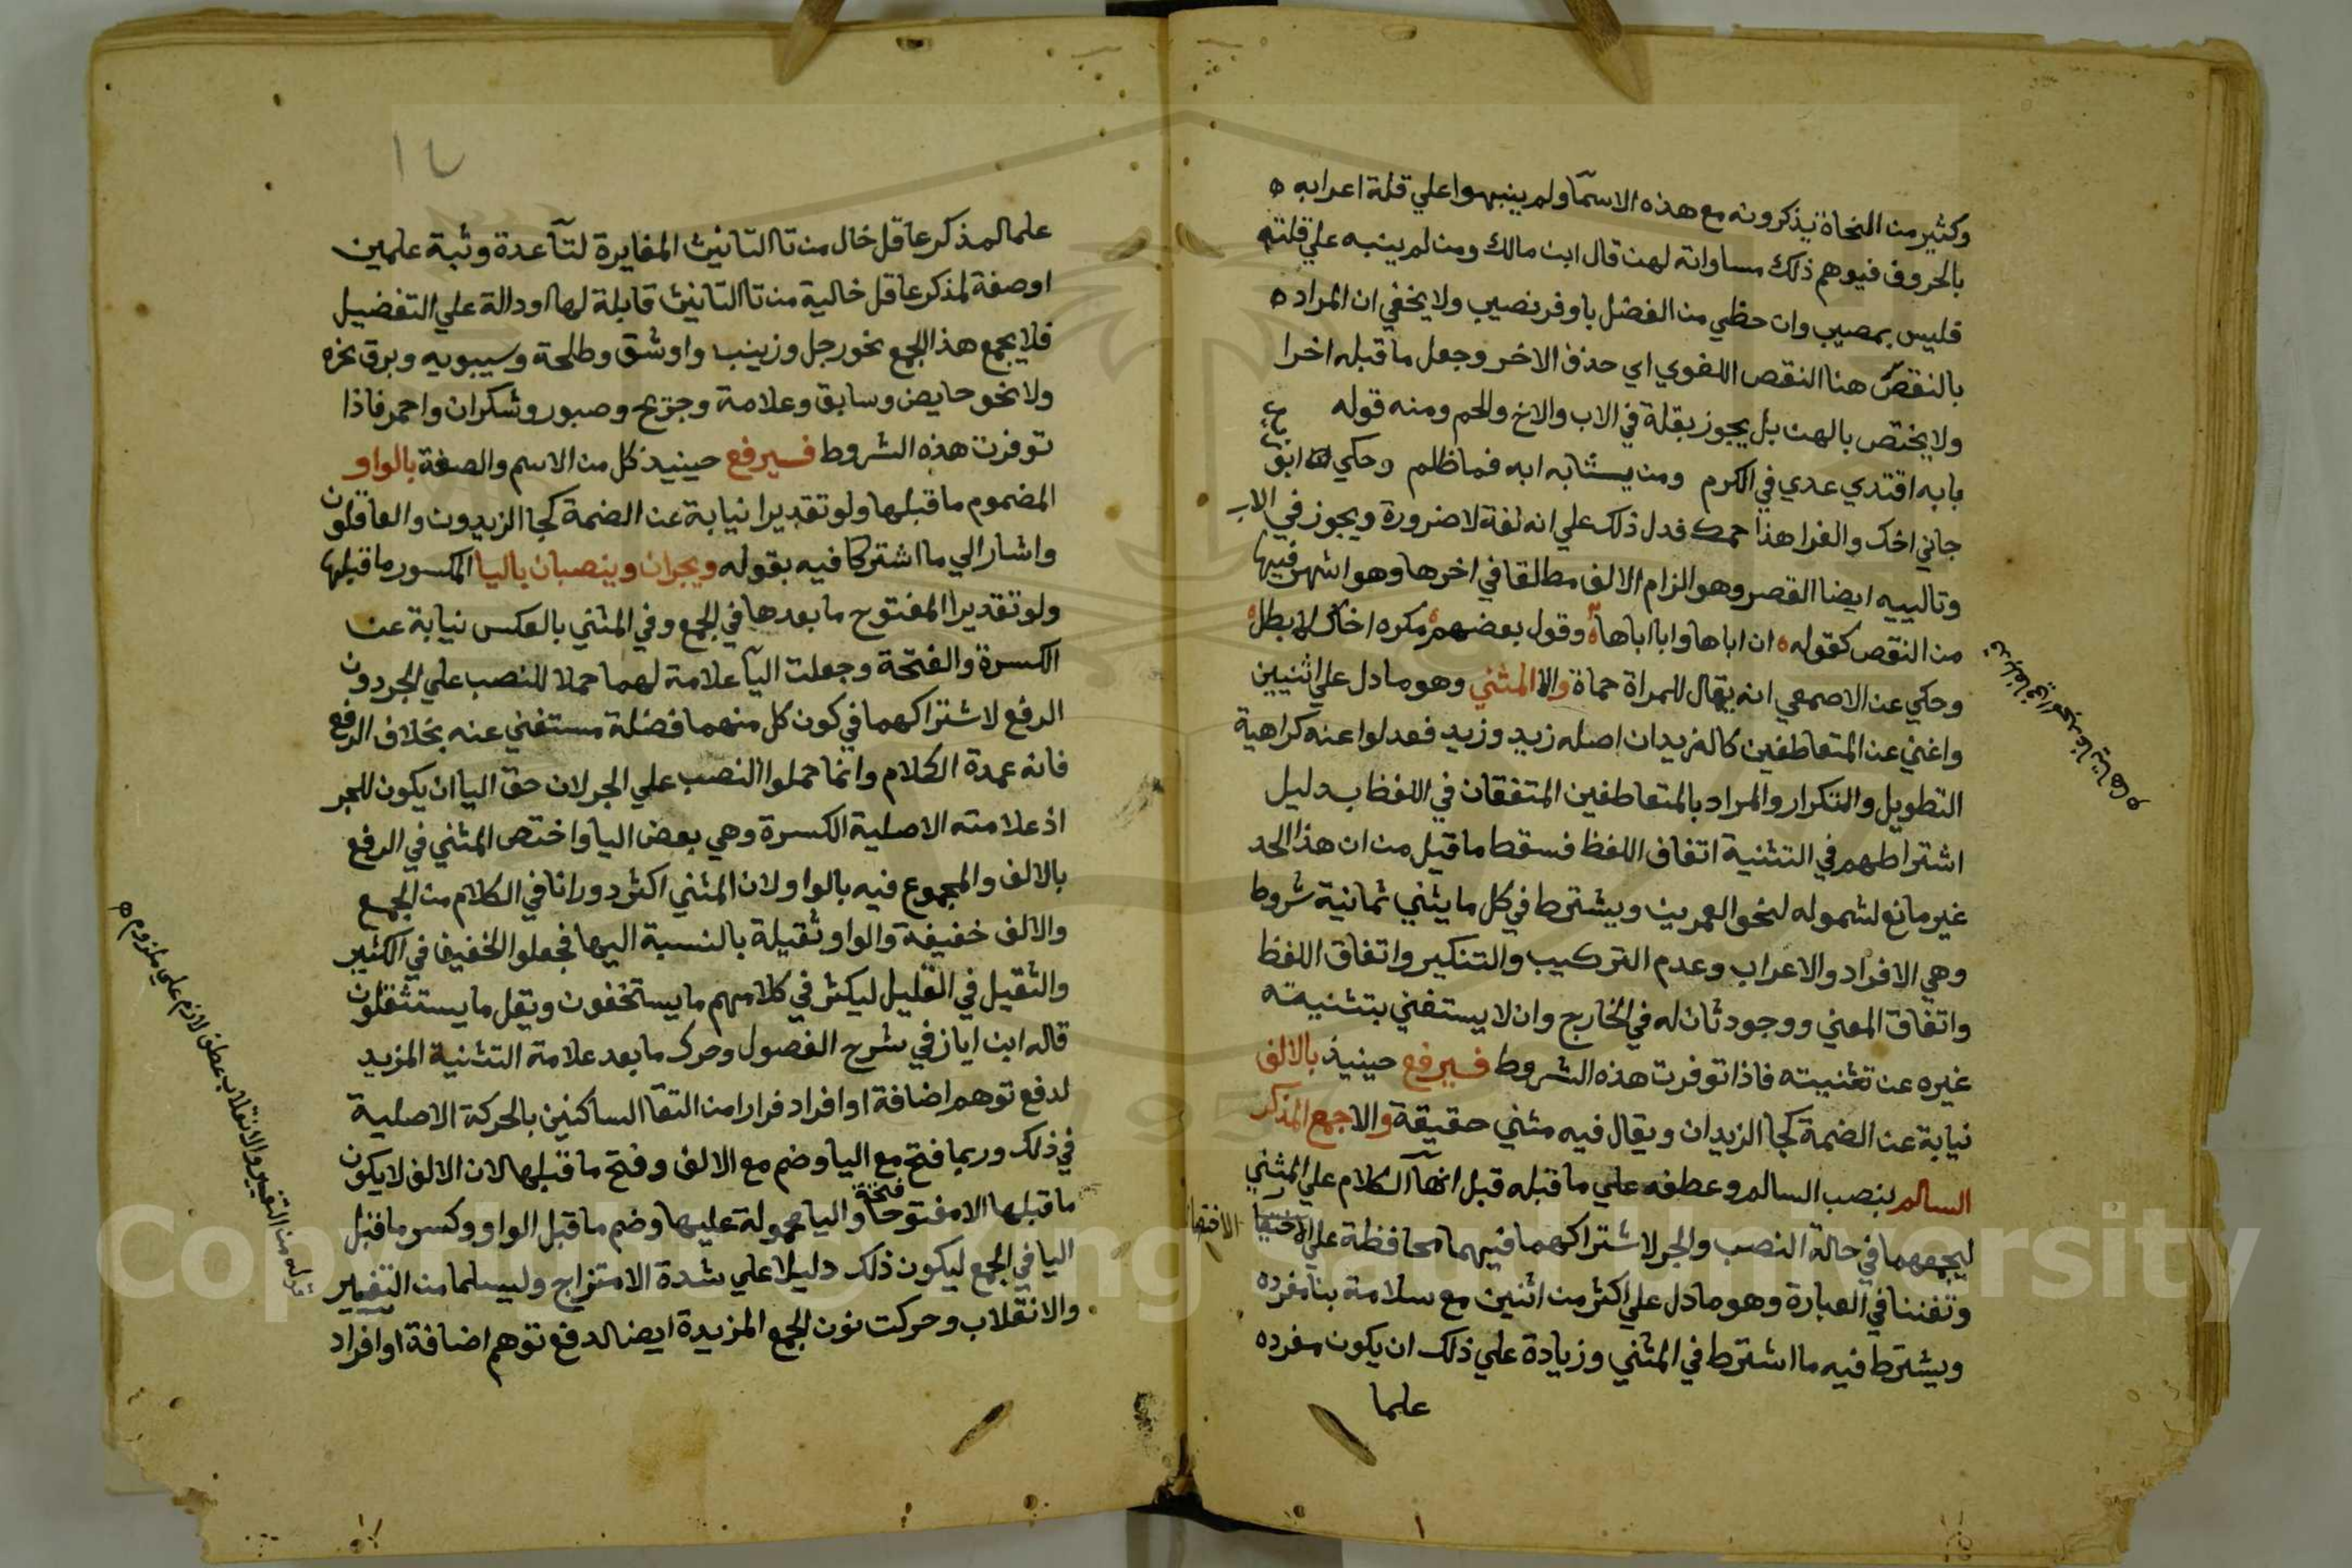 وكثير من النحاة يذكرونه مع هذه الاسمآ ولم ينبهوا علي قلة اعرابه ه
بالحروف فيوهم ذلك مساواته لهن قال ابن مالك ومن لم ينبه علي قلته
فليس بمصيب وان حظي من الفضل باوفر نصيب ولا يخفي ان المراد ه
بالنقص هنا النقص اللغوي اي حذف الاخر وجعل ما قبله اخرا
ولا يختص بالهن بل يجوز بقلة في الاب والاخ والحم ومنه قوله
بابه اقتدي عدي في الكرم ومن يشابه ابه فما ظلم وحكي
جاني اخك والفرا هذا حمك فدل ذلك علي انه لغة لا ضرورة ويجوز في الاب
وتالييه ايضا القصر وهو الزام الالف مطلقا في اخرها وهو اشهر فيها
من النقص كقوله ه ان اباها وابا اباها وقول بعضهم مكره اخاك لا بطل
وحكي عن الاصمعي انه يقال للمراة حماة والا المثني وهو ما دل علي اثنين
واغني عن المتعاطفين كالزيدان اصله زيد وزيد فعدلوا عنه كراهية
التطويل والتكرار والمراد بالمتعاطفين المتفقان في اللفظ بدليل
اشتراطهم في التثنية اتفاق اللفظ فسقط ما قيل من ان هذا الحد
غير مانع لشموله لنحو العمرين ويشترط في كل ما يثني ثمانية شروط
وهي الافراد والاعراب وعدم التركيب والتنكير واتفاق اللفظ
واتفاق المعني ووجود ثان له في الخارج وان لا يستغني بتثنيته
غيره عن تثنيته فاذا توفرت هذه الشروط فيرفع حينيذ بالالف
نيابة عن الضمة كجا الزيدان ويقال فيه مثني حقيقة والا جمع المذكر
السالم بنصب السالم وعطفه علي ما قبله قبل انهآ الكلام علي المثني
ليجمعهما في حالة النصب والجر لاشتراكهما فيهما محافظة علي
الاختصار
وتفننا في العبارة وهو ما دل علي اكثر من اثنين مع سلامة بنا مفرده
ويشترط فيه ما اشترط في المثني وزيادة علي ذلك ان يكون مفرده
علما
١٢
علما لمذكر عاقل خال من تا التانيث المغايرة لتآ عدة وثبة علمين
او صفة لمذكر عاقل خالية من تا التانيث قابلة لها او دالة علي التفضيل
فلا يجمع هذا الجمع نحو رجل وزينب واوشق وطلحة وسيبويه وبرق نحره
ولا نحو حايض وسابق وعلامة وجريح وصبور وشكران واحمر فاذا
توفرت هذه الشروط فيرفع حينيذ كل من الاسم والصفة بالواو
المضموم ما قبلها ولو تقديرا نيابة عن الضمة كجا الزيدون والعاقلون
واشار الي ما اشتركا فيه بقوله ويجران وينصبان باليا المكسور ما قبلها
ولو تقديرا المفتوح ما بعدها في الجمع وفي المثني بالعكس نيابة عن
الكسرة والفتحة وجعلت اليآ علامة لهما حملا للنصب علي الجر دون
الرفع لاشتراكهما في كون كل منهما فضلة مستغني عنه بخلاف الرفع
فانه عمدة الكلام وانما حملوا النصب علي الجر لان حق اليا ان يكون للجر
اذ علامته الاصلية الكسرة وهي بعض اليا واختص المثني في الرفع
بالالف والمجموع فيه بالواو لان المثني اكثر دورانا في الكلام من الجمع
والالف خفيفة والواو ثقيلة بالنسبة اليها فجعلوا الخفيف في الكثير
والثقيل في القليل ليكثر في كلامهم ما يستخفون ويقل ما يستثقلون
قاله ابن اياز في شرح الفصول وحرك ما بعد علامة التثنية المزيد
لدفع توهم اضافة او افراد فرارا من التقا الساكنين بالحركة الاصلية
في ذلك وربما فتح مع اليا وضم مع الالف وفتح ما قبلها لان الالف لا يكون
ما قبلها الا مفتوحا واليا محمولة عليها وضم ما قبل الواو وكسر ما قبل
فتحة
اليا في الجمع ليكون ذلك دليلا علي شدة الامتزاج وليسلما من التغيير
والانقلاب وحركت نون الجمع المزيدة ايضا لدفع توهم اضافة او افراد
قوله من التغيير والانقلاب عطف لازم علي ملزوم ه
Copyright © King Saud University
1957